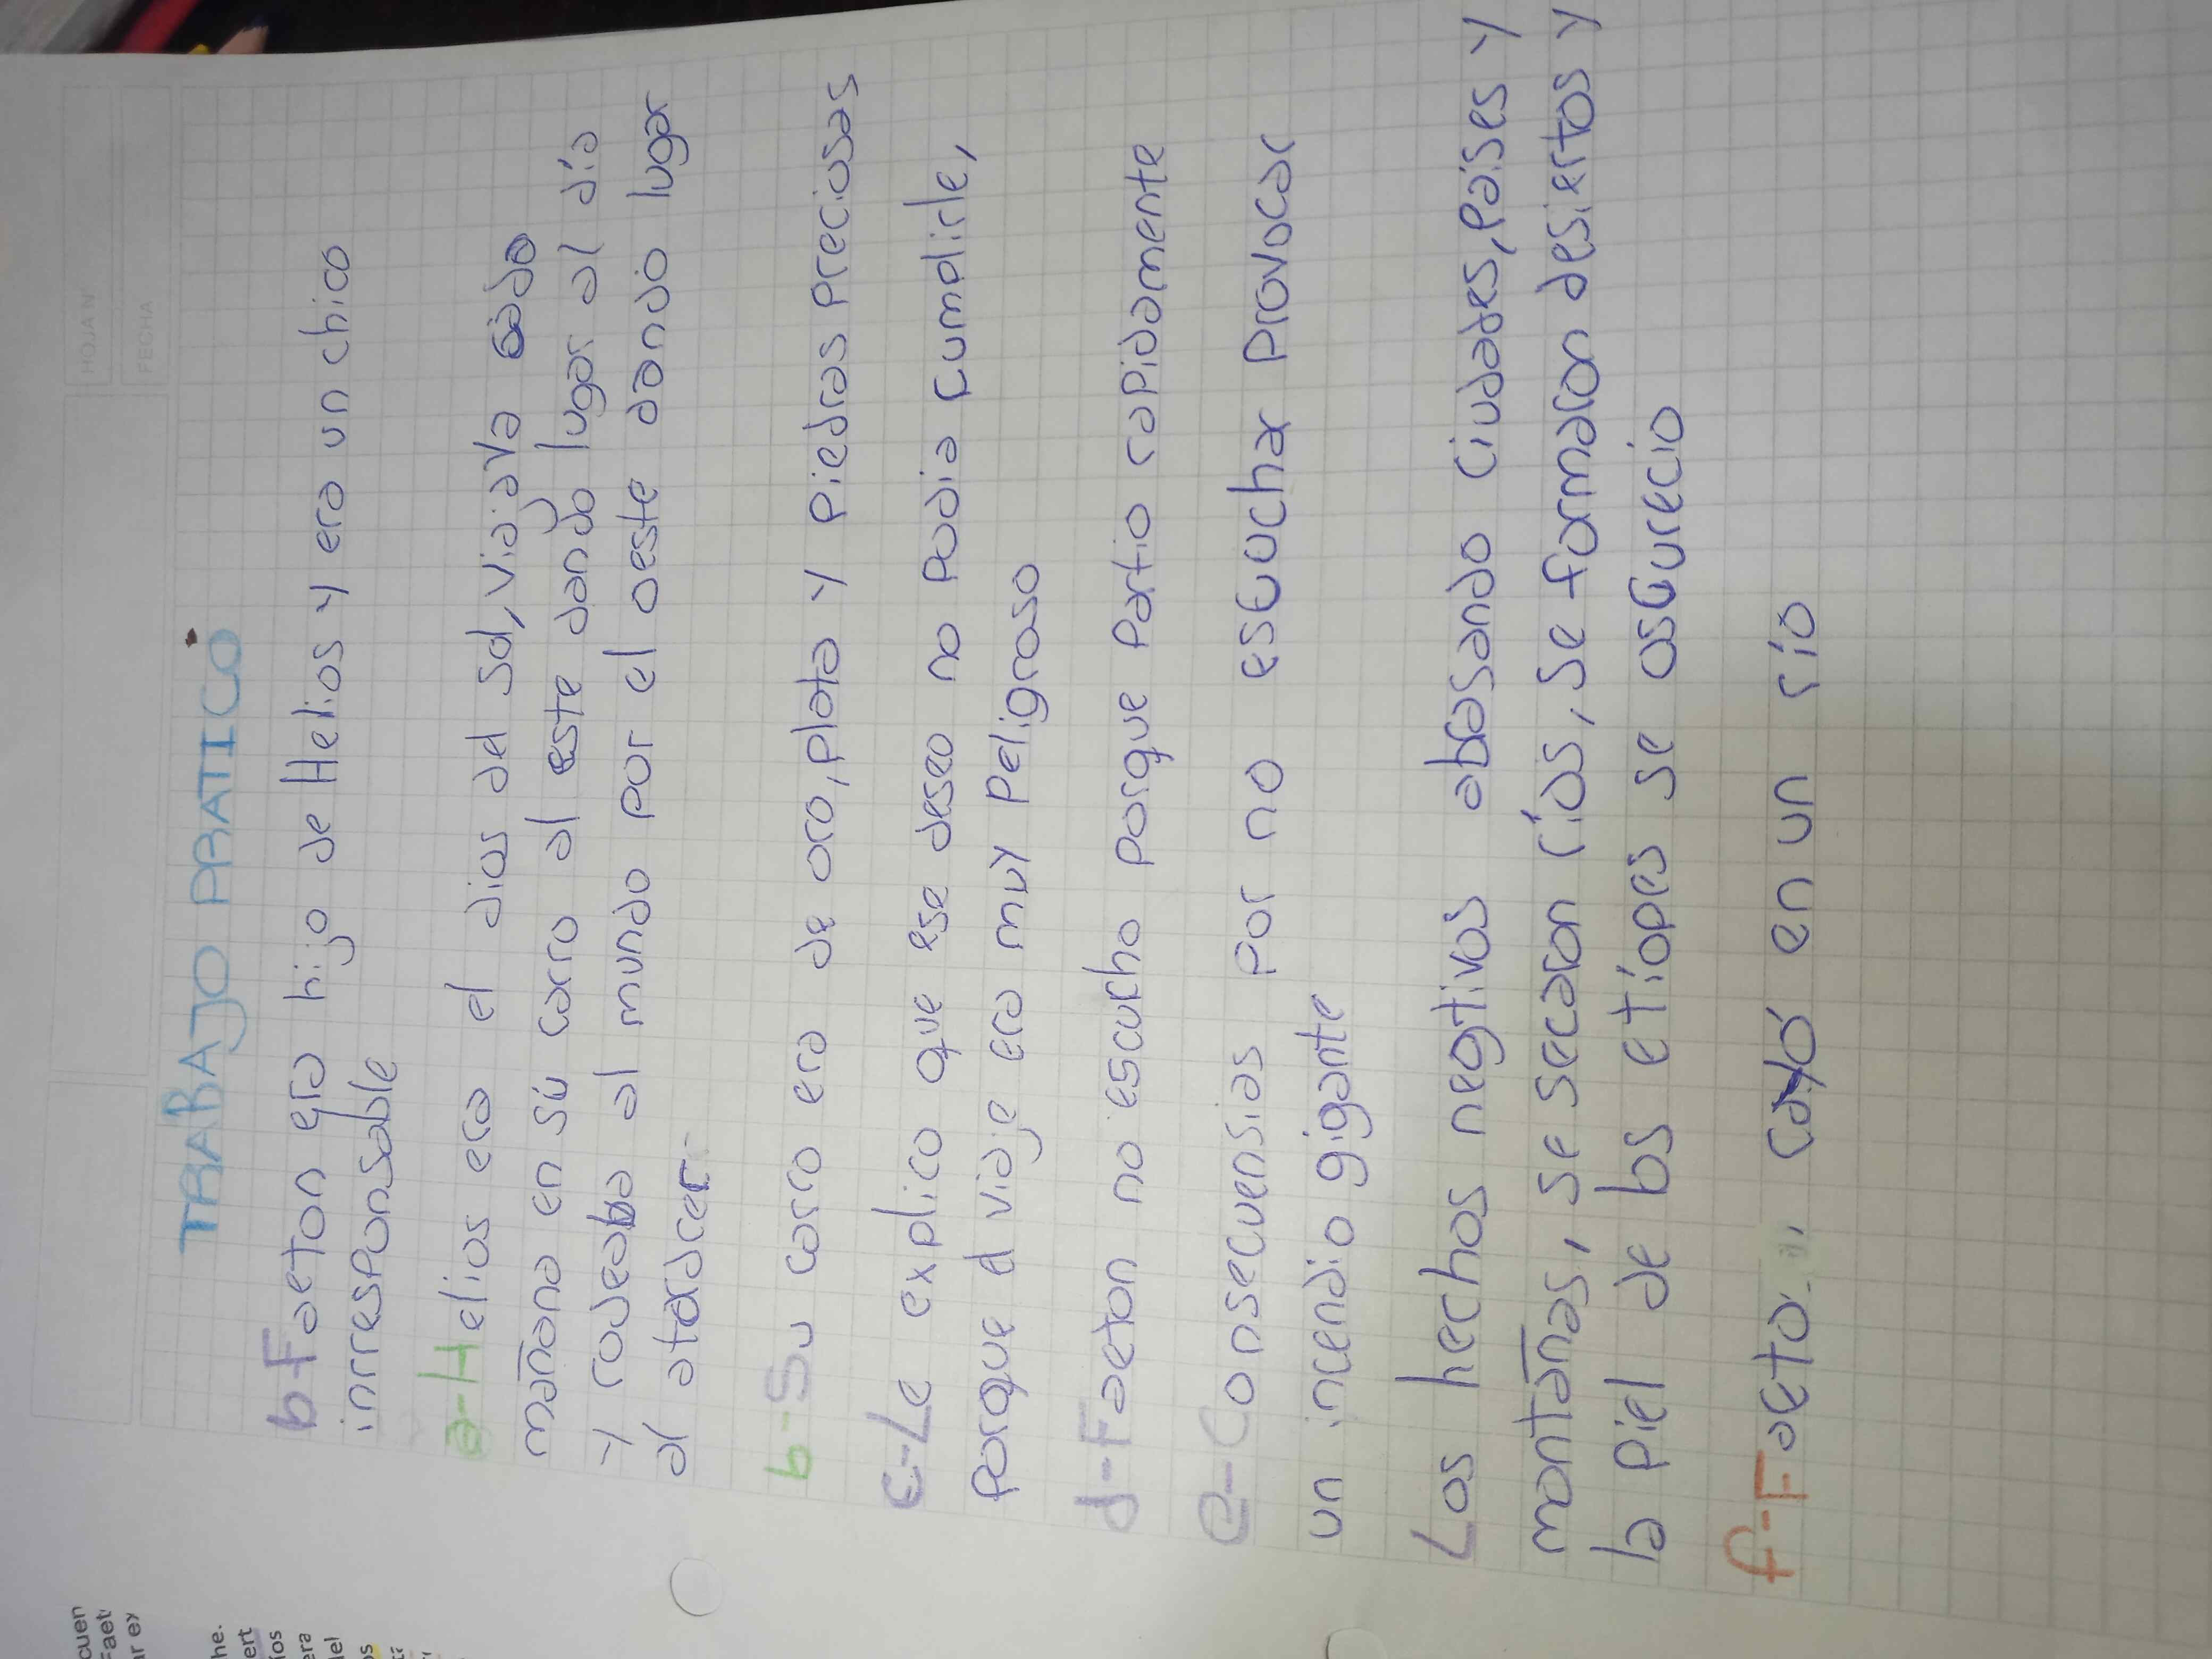 HOJA Nº
FECHA
TRABAJO PRATICO
b-Faeton era hijo de Helios y era un chico
inrresponsable
a-Helios era el dios del sol, viajava cada
mañana en su carro al este dando lugar al día
y rodeaba al mundo por el oeste dando lugar
al atardcer
b-Su carro era de oro, plata y piedras preciosas
c-Le explico que ese deseo no podia cumplirle,
porque el viaje era muy peligroso
d-Faeton no escucho porque partio rapidamente
e-Consecuensias por no escuchar provocar
un incendio gigante
Los hechos negtivos abrasando ciudades, países y
montañas, se secaron ríos, se formaron desiertos y
la piel de los etíopes se oscurecio
f-Faeto cayó en un río
cuen
Faet
ar ex
he.
ert
íos
era
del
os